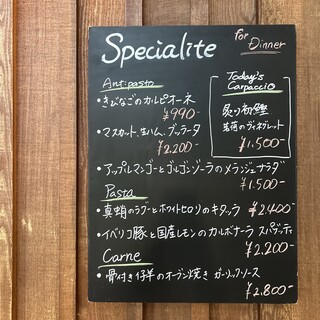 Specialite
for Dinner
Antipasto
・きびなごのカルピオーネ
¥990-
・マスカット、生ハム、ブッラータ
¥2.200-
Today's
Carpaccio
炙り初鰹
茗荷のヴィネグレット
¥1.500-
・アップルマンゴーとゴルゴンゾーラのメランジェサラダ
¥1.500-
Pasta
・真蛸のラグーとホワイトセロリのキタッラ ¥2.400-
・イベリコ豚と国産レモンのカルボナーラ スパゲッティ
¥2.200-
Carne
・骨付き仔羊のオーブン焼き ガーリックソース
¥2.800-